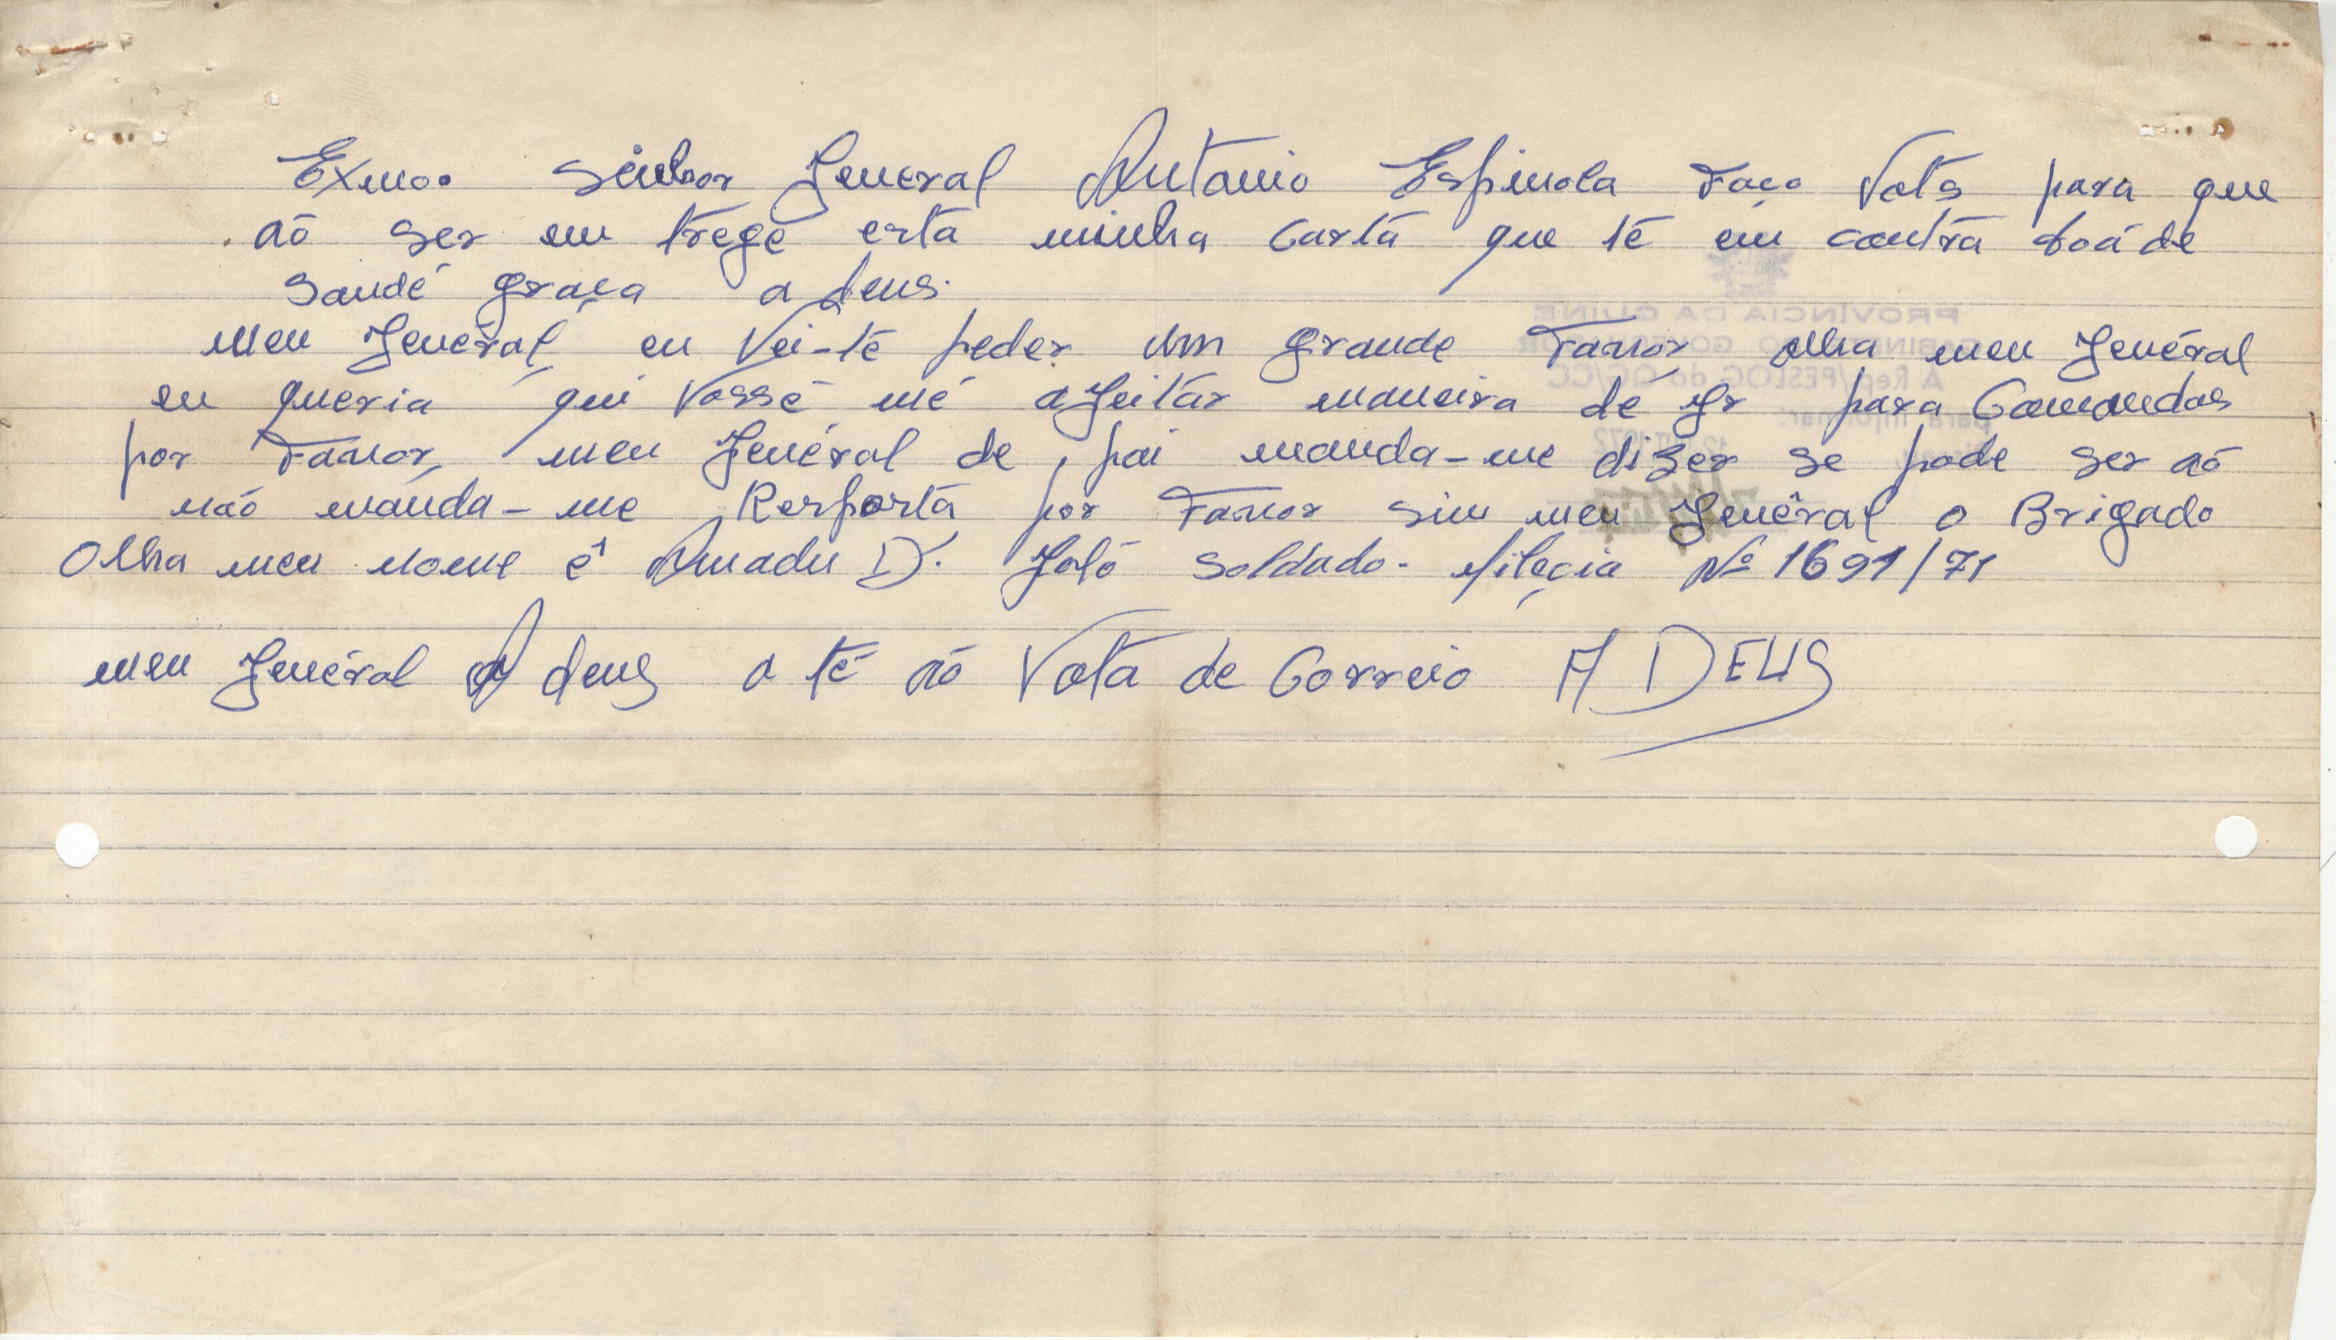 Exmo. Senhor Jeneral Antonio Espinola Faço Vots para que
aõ ser em trege esta minha Carta que té em contra boá de
Saudé graça a deus.
Meu Jenéral, eu Vei-té peder um grande Favor, olha meu Jenéral
eu queria qui Vossé mé ajeitar maneira dé Yr para Comandos
por Favor, meu Jenéral de pai manda-me dizer se pode ser aõ
não manda-me Resposta por Favor sim meu Jenêral o Brigado
Olha meu nome é Amadu D. Jaló Soldado. Milecia Nº 1691/71
meu Jenéral A deus a té aõ Vota de Correio A DEUS
PROVÍNCIA DA GUINÉ
GABINETE DO GOVERNADOR
À Rep/PESLOG do QG/CC
para informar.